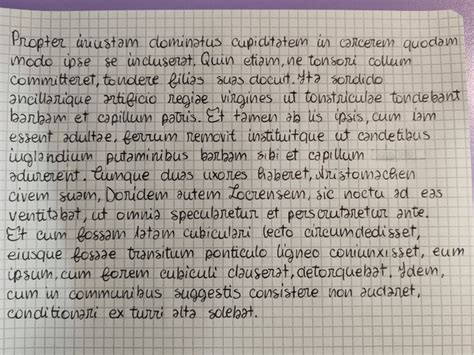 Propter iniustam dominatus cupiditatem in carcerem quodam
modo ipse se incluserat, Quin etiam, ne tonsori collum
committeret, tondere filias suas docuit. Ita sordido
ancillarique artificio regiae virgines ut tonstriculae tondebant
barbam et capillum patris. Et tamen ab iis ipsis, cum iam
essent adultae, ferrum removit instituitque ut candetibus
iuglandium putaminibus barbam sibi et capillum
adurerent. Cumque duas uxores haberet, Aristomachen
civem suam, Doridem autem Locrensem, sic noctu ad eas
ventitabat, ut omnia specularetur et perscrutaretur ante.
Et cum fossam latam cubiculari lecto circumdedisset,
eiusque fossae transitum ponticulo ligneo coniunxisset, eum
ipsum, cum forem cubiculi clauserat, detorquebat. Idem,
cum in communibus suggestis consistere non auderet,
conditionari ex turri alta solebat.